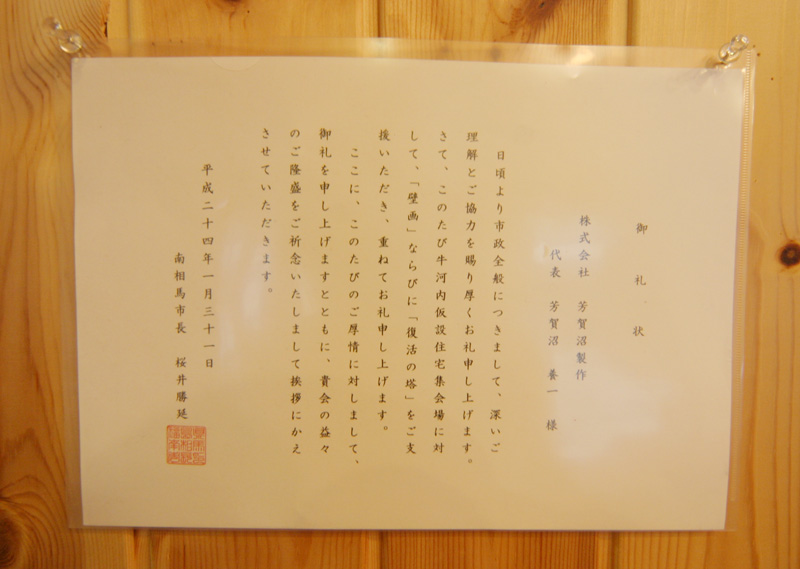 御礼状
株式会社 芳賀沼製作
代表 芳賀沼 養一 様
日頃より市政全般につきまして、深いご
理解とご協力を賜り厚くお礼申し上げます。
さて、このたび牛河内仮設住宅集会場に対
して、「壁画」ならびに「復活の塔」をご支
援いただき、重ねてお礼申し上げます。
ここに、このたびのご厚情に対しまして、
御礼を申し上げますとともに、貴会の益々
のご隆盛をご祈念いたしまして挨拶にかえ
させていただきます。
平成二十四年一月三十一日
南相馬市長 桜井勝延